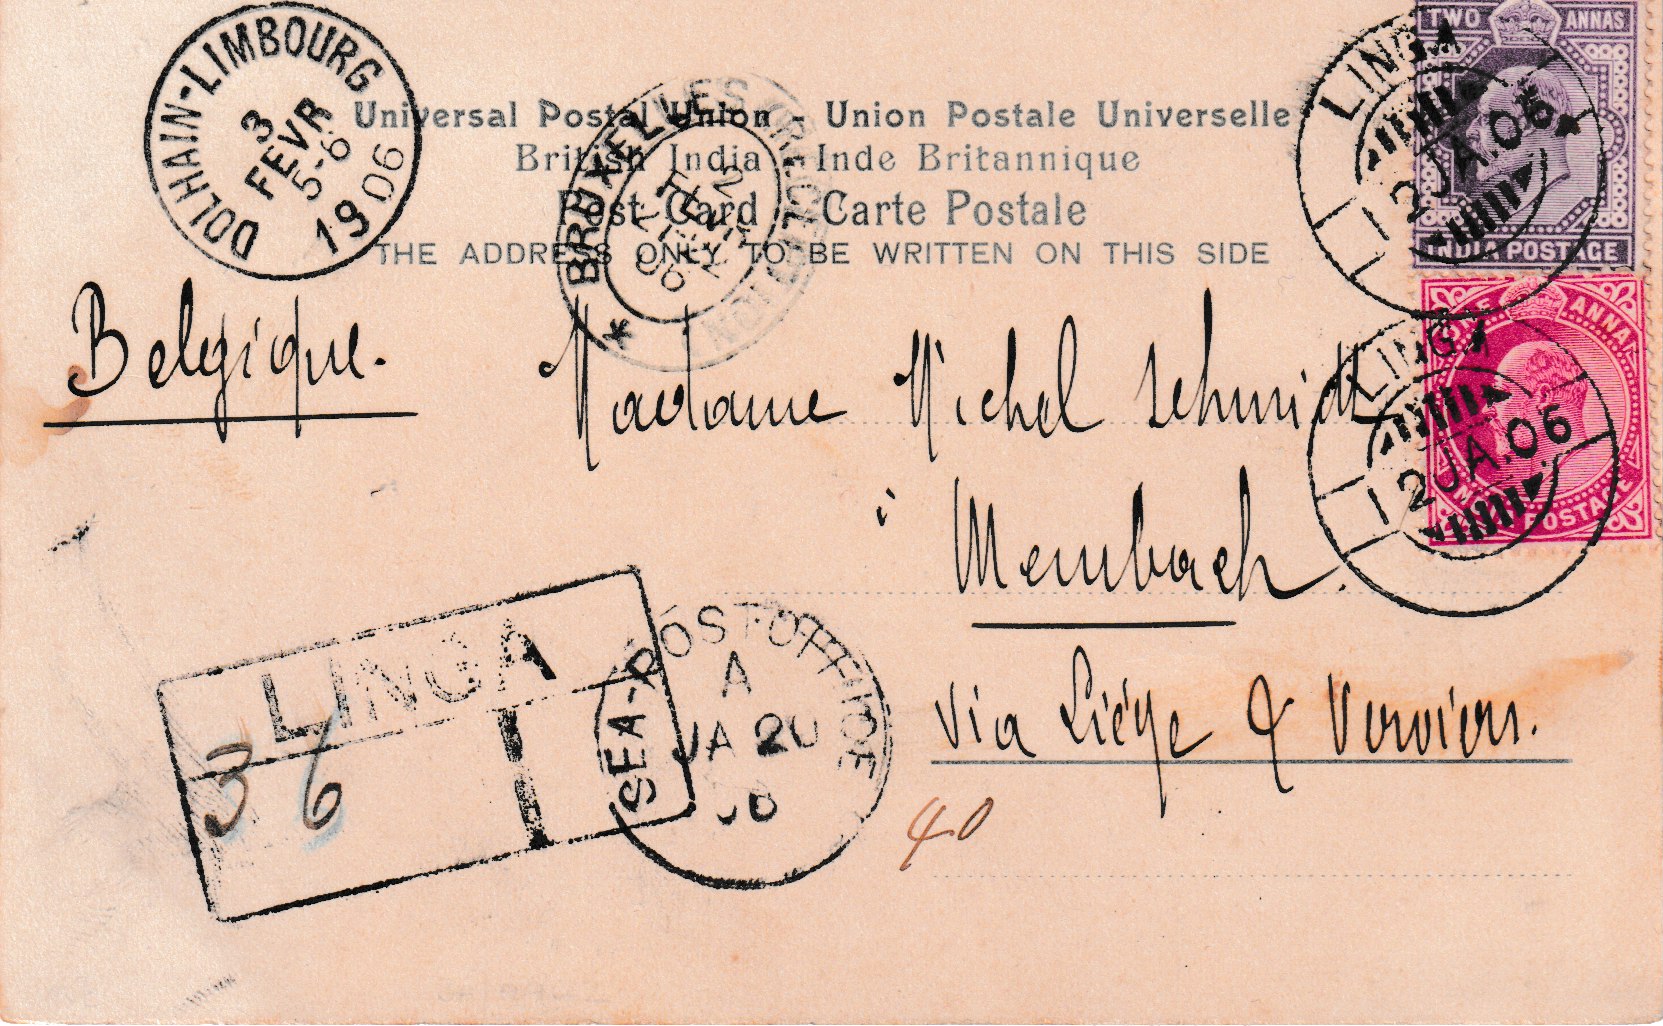 TWO ANNAS
INDIA POSTAGE
LINGA
12 JA.06
ONE ANNA
POSTAGE
LINGA
12 JA.06
DOLHAIN-LIMBOURG
3
FEVR
5-6
1906
BRUXELLES
Universal Postal Union - Union Postale Universelle
British India - Inde Britannique
Post Card - Carte Postale
THE ADDRESS ONLY TO BE WRITTEN ON THIS SIDE
Belgique.
Madame Michel Schmidt
à
Membach.
Via Liége & Verviers.
LINGA
36
SEA-POST OFFICE
A
JA 20
06
40